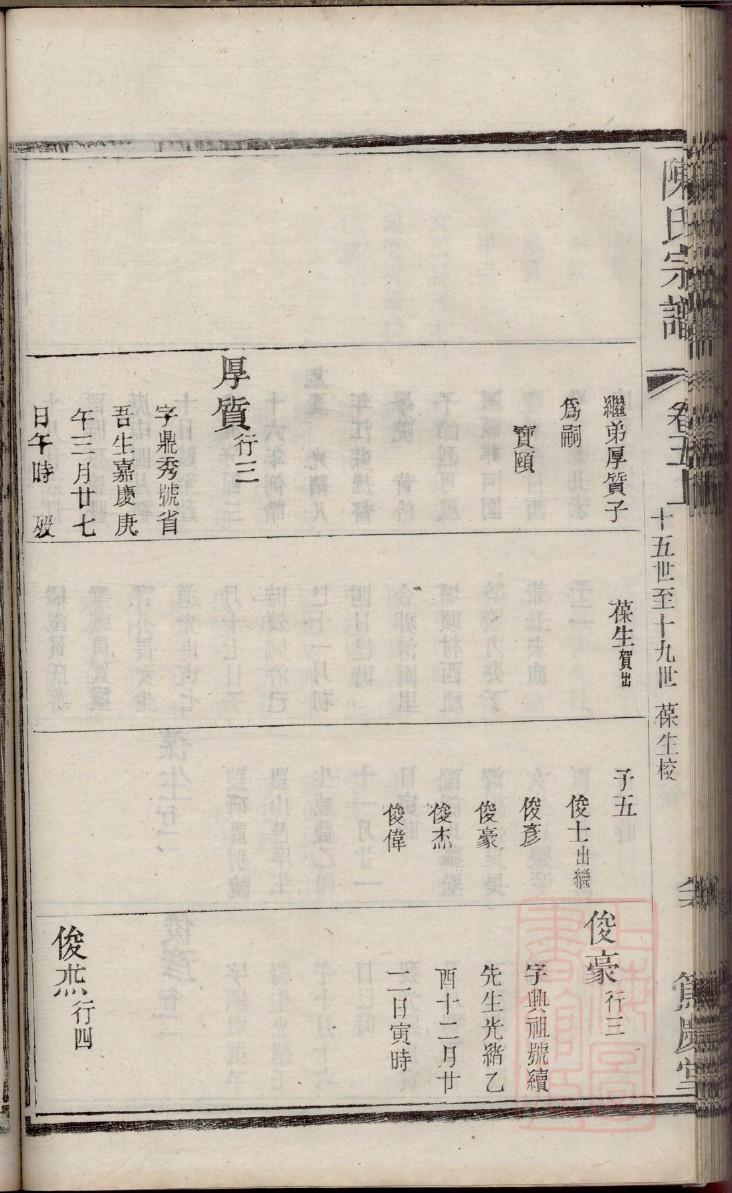 陳氏宗譜
卷五上
十五世至十九世 葆生校
篤慶堂
繼弟厚質子
爲嗣
寶頤
厚質行三
字鼎秀號省
吾生嘉慶庚
午三月廿七
日午時 歿
葆生賀出
子五
俊士出繼
俊彥
俊豪
俊杰
俊偉
俊豪行三
字典祖號續
先生光緒乙
酉十二月廿
二日寅時
俊杰行四